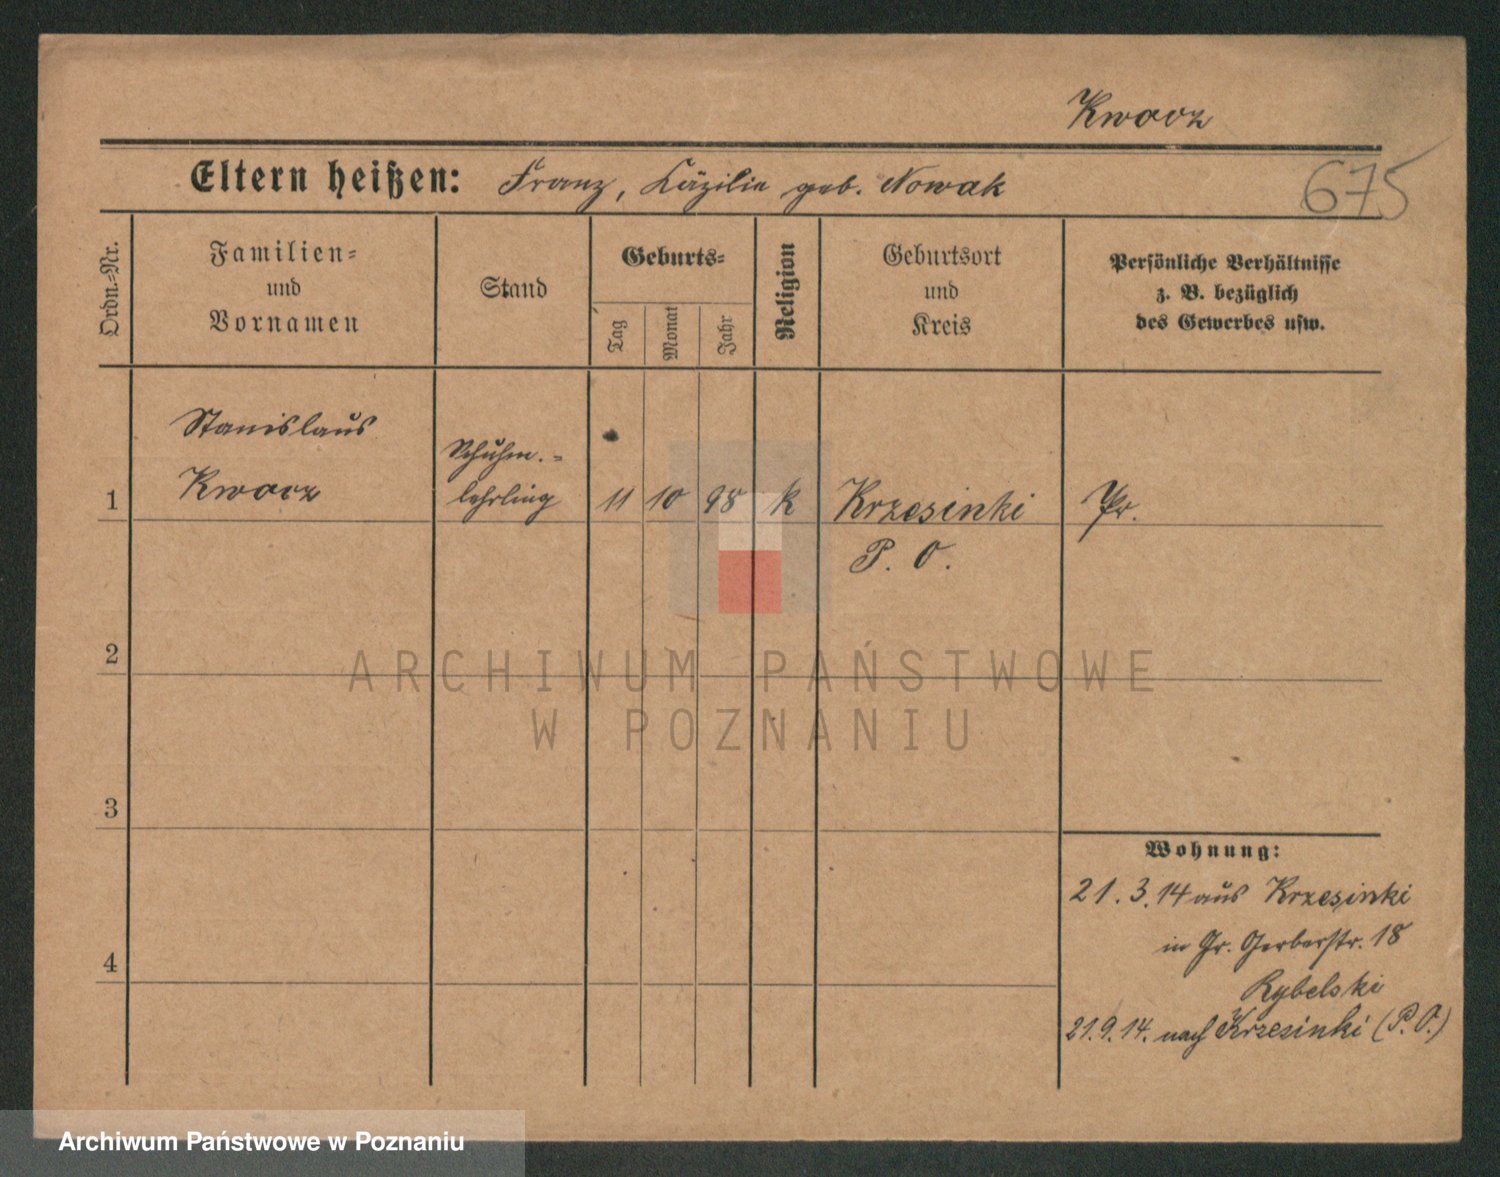 Kwacz
Eltern heißen: Franz, Cäzilie geb. Nowak
675
Ordn.=Nr.
Familien=
und
Vornamen
Stand
Geburts=
Tag
Monat
Jahr
Religion
Geburtsort
und
Kreis
Persönliche Verhältnisse
z. B. bezüglich
des Gewerbes usw.
Stanislaus
Schuhm.=
1 Kwacz lehrling 11 10 98 k Krzesinki Pr.
P. O.
2
ARCHIWUM PAŃSTWOWE
W POZNANIU
3
Wohnung:
21.3.14 aus Krzesinki
in Gr. Gerberstr. 18
4
Rybelski
21.9.14. nach Krzesinki (P.O.)
Archiwum Państwowe w Poznaniu